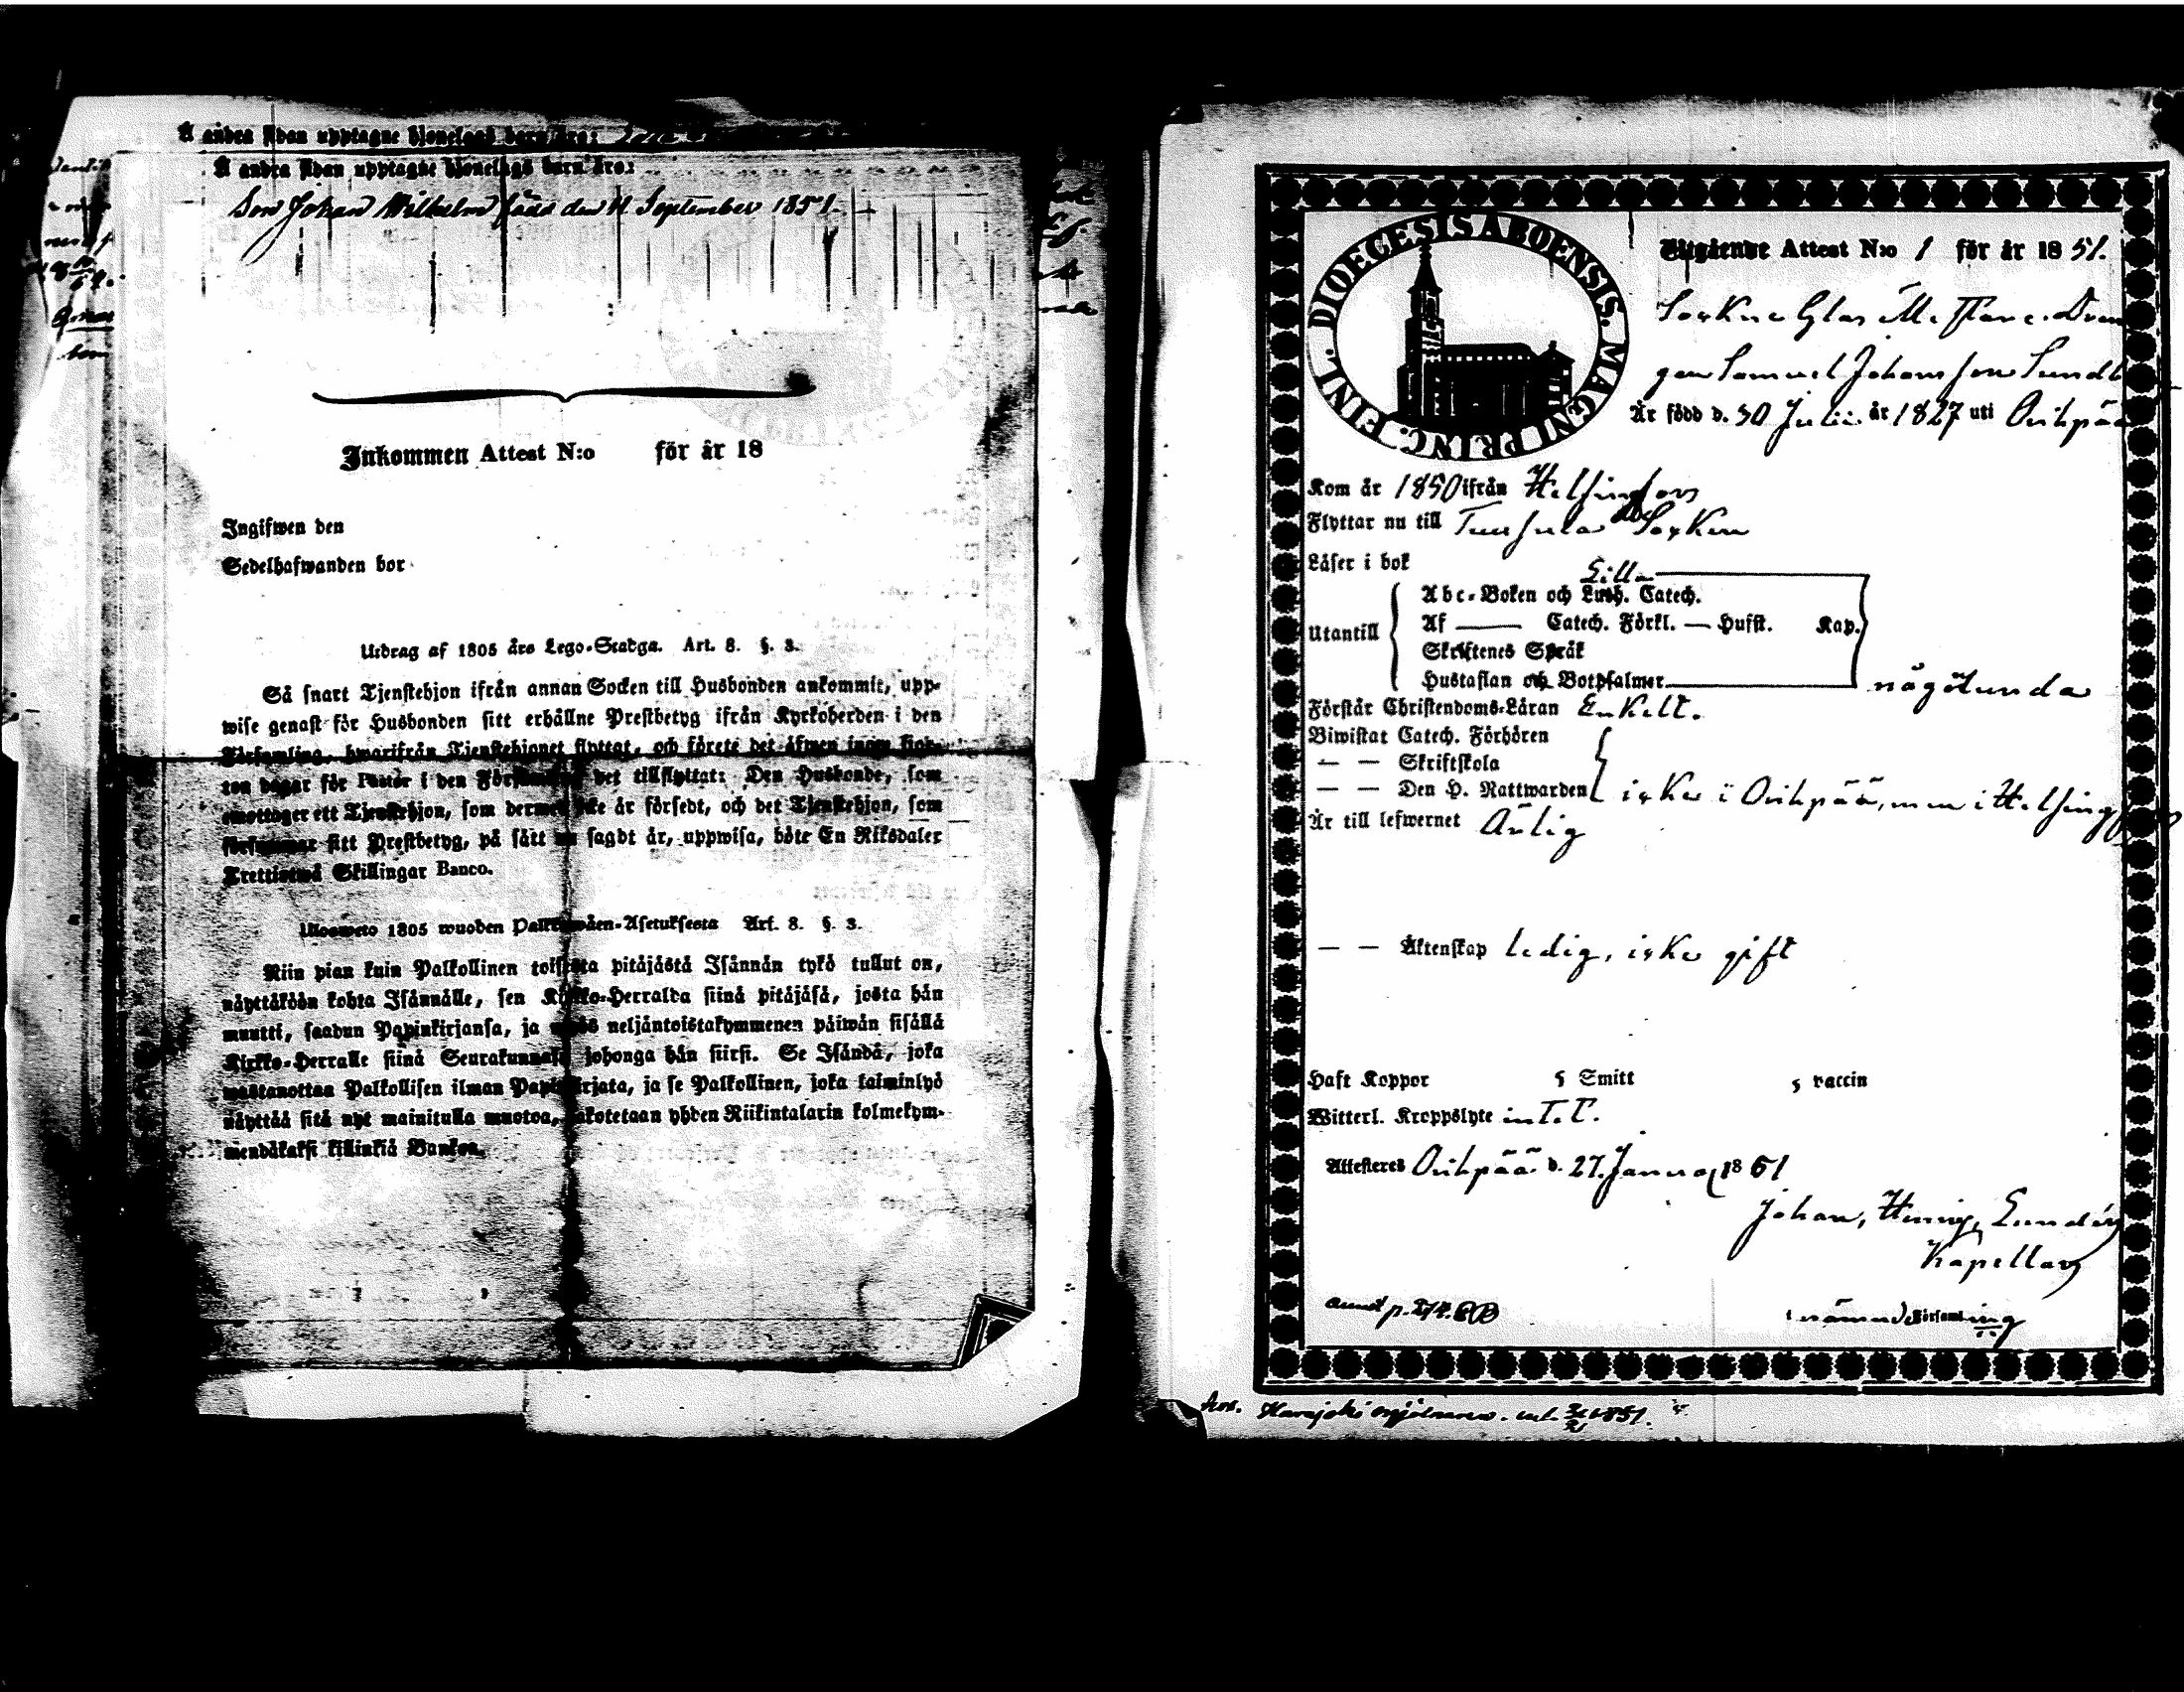 Å andra sidan upptagne Hionelags barn äro:
Å andra sidan upptagne Hionelags barn äro:
Son Johan Wilhelm född den 11 September 1851.
Inkommen Attest N:o för år 18
Ingifwen den
Sedelhafwanden bor
Utdrag af 1805 års Lego-Stadga. Art. 8. §. 3.
Så snart Tjenstehjon ifrån annan Socken till Husbonden ankommit, upp-
wise genast för Husbonden sitt erhållne Prestbetyg ifrån Kyrkoherden i den
Församling, hwarifrån Tjenstehjonet flyttat, och förete det äfwen inom fjor-
ton dagar för Pastor i den det tillflyttat: Den Husbonde, som
emottager ett Tjenstehjon, som dermed icke är försedt, och det Tjenstehjon, som
försummar sitt Prestbetyg, på sätt nu sagdt är, uppwisa, böte En Riksdaler
Trettiotwå Skillingar Banco.
Ulosweto 1805 wuoden Palkkawäen-Asetuksesta Art. 8. §. 3.
Niin pian kuin Palkollinen toisesta pitäjästä Isännän tykö tullut on,
näyttäköön kohta Isännälle, sen Kirkko-Herralda siinä pitäjäsä, josta hän
muutti, saadun Papinkirjansa, ja myös neljäntoistakymmenen päiwän sisällä
Kirkko-Herralle siinä Seurakunnasa johonga hän siirsi. Se Isändä, joka
wastanottaa Palkollisen ilman Papinkirjata, ja se Palkollinen, joka laiminlyö
näyttää sitä nyt mainitulla muotoa, sakotetaan yhden Riikintalarin kolmekym-
mendäkaksi killinkiä Bankoa.
DIOECESIS ABOENSIS. MAGNI PRINC. FINL.
Utgående Attest N:o 1 för år 1851.
Sockne Glas Mästare Dren
gen Samuel Johansson Sundb
Är född d. 30 Julii år 1827 uti Oripää
Kom år 1850 ifrån Helsingfors
Flyttar nu till Tuusula Socken
Läser i bok
Lilla
Abc-Boken och Luth. Catech.
Utantill Af Catech. Förkl. — Hufst. Kap.
Skriftenes Språk
Hustaflan och Botpsalmer
någölunda
Förstår Christendoms-Läran Enkelt.
Biwistat Catech. Förhören
— — Skriftskola
— — Den H. Nattwarden icke i Oripää, men i Helsingfors
Är till lefwernet Ärlig
— — Äktenskap ledig, icke gift
Haft Koppor Smitt vaccin
Witterl. Kroppslyte int.
Attesteres Oripää d. 27. Januar 1851
Johan, Lundén
Kapellan
nämnde Församling